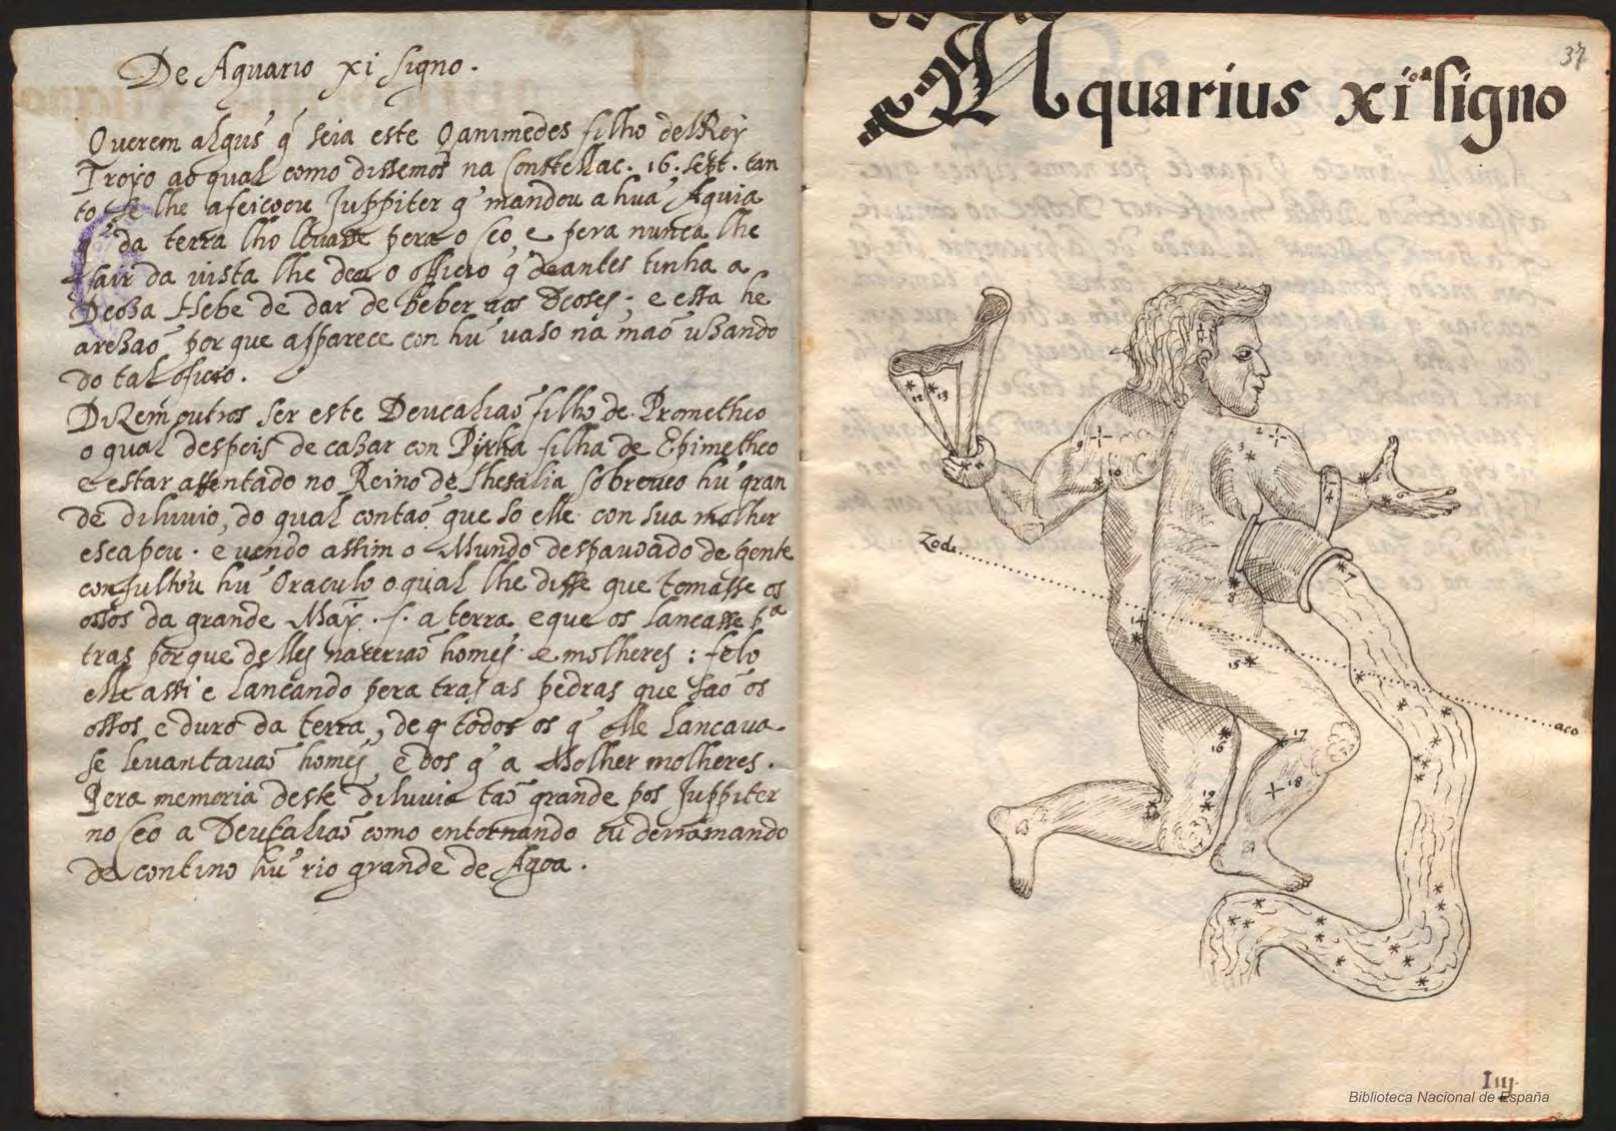 De Aquario xi signo.
Querem algus̃ q̃ seia este Ganimedes filho delRey
Troyo ao qual como dissemos na Constellac. 16. Sept. tan
to se lhe afeicoou Juppiter q̃ mandou a huã Aguia
q̃ da terra lho levasse pera o ceo, e pera nunca lhe
sair da vista lhe deu o officio q̃ deantes tinha a
Deoza Hebe de dar de beber aos Deoses; e esta he
a rezaõ por que apparece con hũ vaso na maõ uzando
do tal oficio.
Dizem outros ser este Deucaliaõ filho de Prometheo
o qual despois de cazar con Pirha filha de Epimetheo
e estar assentado no Reino de Thesalia sobreveo hũ gran
de diluvio, do qual contaõ que so elle con sua molher
escapou. e vendo assim o Mundo despavoado de gente
consultou hũ Oraculo o qual lhe disse que tomasse os
ossos da grande May. s. a terra e que os lancasse pª
tras porque delles naceriaõ homẽs e molheres: fe lo
elle assi e lancando pera tras as pedras que saõ os
ossos e duro da terra, de q̃ todos os q̃ elle lancava
se levantavaõ homẽs, e dos q̃ a Molher molheres.
Pera memoria deste diluvio taõ grande pos Juppiter
no ceo a Deucaliaõ como entornando ou derramando
de contino hũ rio grande de Agoa.
37
Aquarius xiº signo
12 13
10
2
3
4
Zodi
7
14
15
aco
17
16
18
Iiij.
Biblioteca Nacional de España